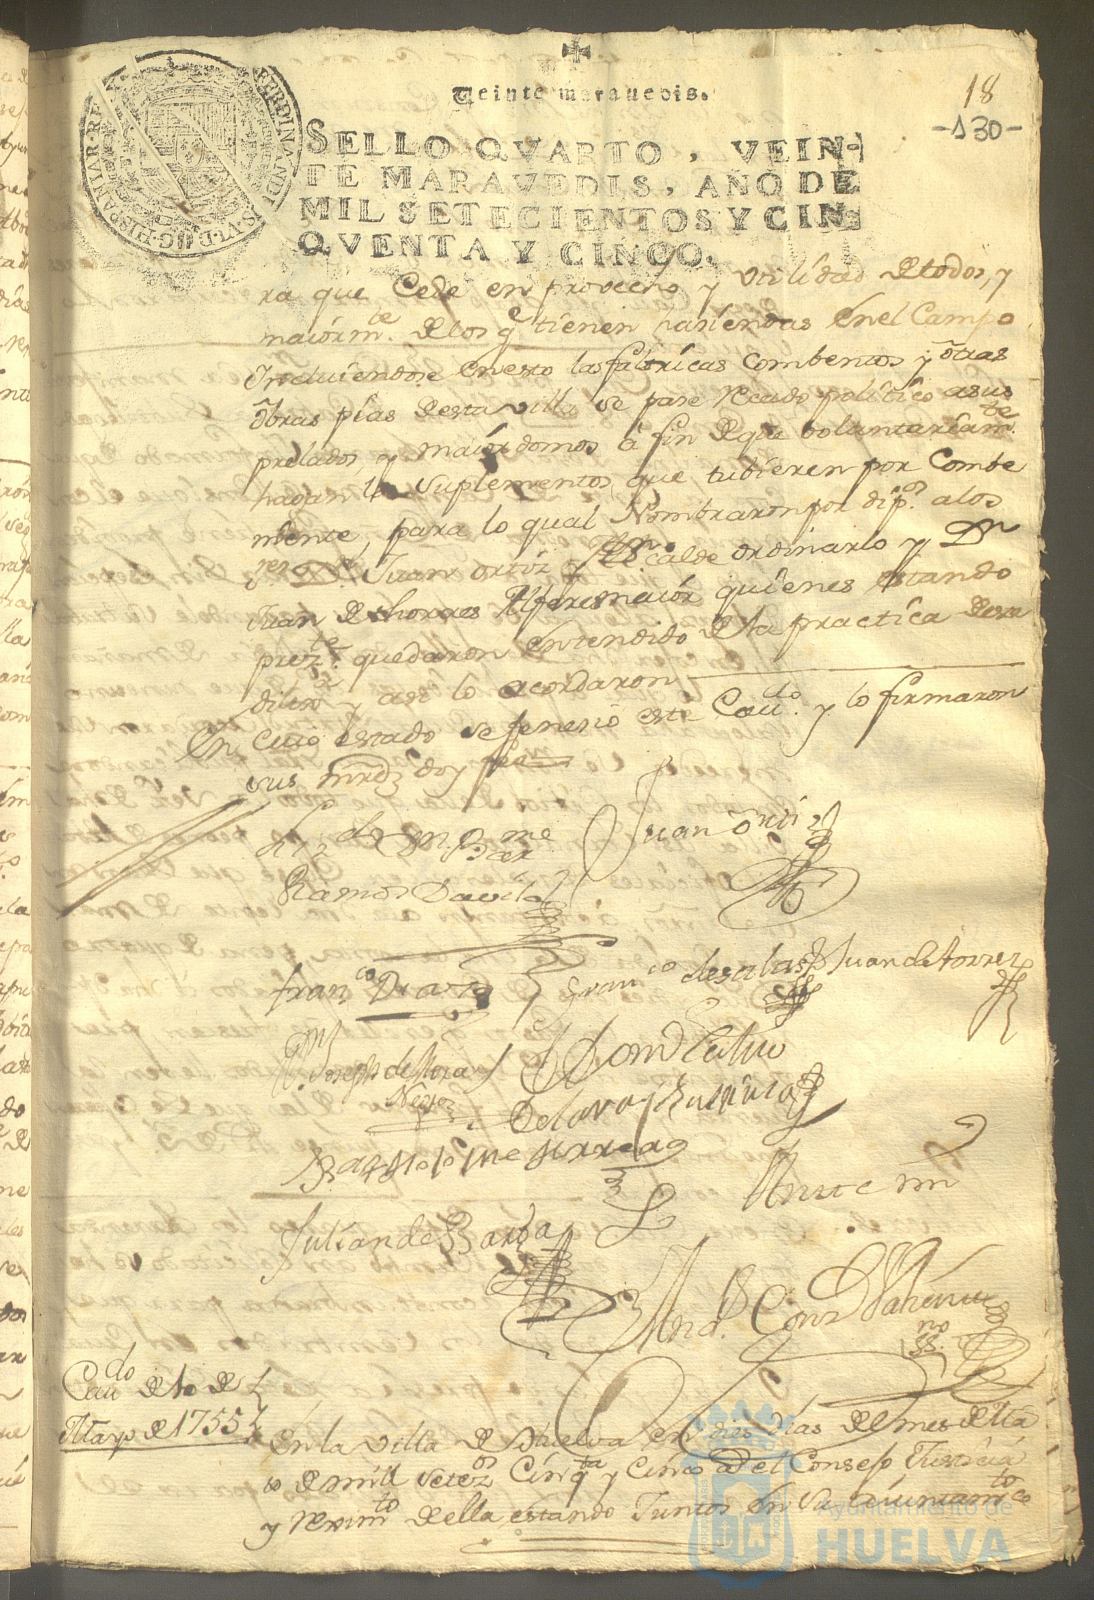 18
-130-
Veinte marauedis.
SELLO QVARTO, VEIN-
TE MARAVEDIS, AÑO DE
MIL SETECIENTOS Y CIN-
QVENTA Y CINCO.
ra que Cede en provecho y Vtilidad de todos, y
maiormte. de los qe tienen haziendas en el Campo
Incluiendose en esto las fabricas Combentos y otras
obras pias desta villa se pase recado politico a sus
prelados, y maiordomos â fin de que boluntariamte.
hagan los suplementos que tubieren por Combe
niente, para lo qual Nombraron por dip.s a los
Juan ortiz Alcalde ordinario y Dn
Juan de thorres Alferes maior quienes estando
preztes. quedaron entendido de la practica desta
dilixa y asi lo acordaron
En cuio estado se fenesio este Caudo. y lo firmaron
sus mrdz doy fee
Juan ortiz
Ramos Davila
Franco Diaz
Franco de salas
Juan de torres
Dn Joseph de Mora
Negro
Bartholome
Ante mi
Julian de Barba
Caudo de 10 de
Mayo de 1755
En la villa de Huelva en dies dias del mes de Ma
io de mill setezos Cinqta y Cinco a el Consejo Justicia
y reximto de ella estando Juntos en su aiuntamto
Ayuntamiento de
HUELVA